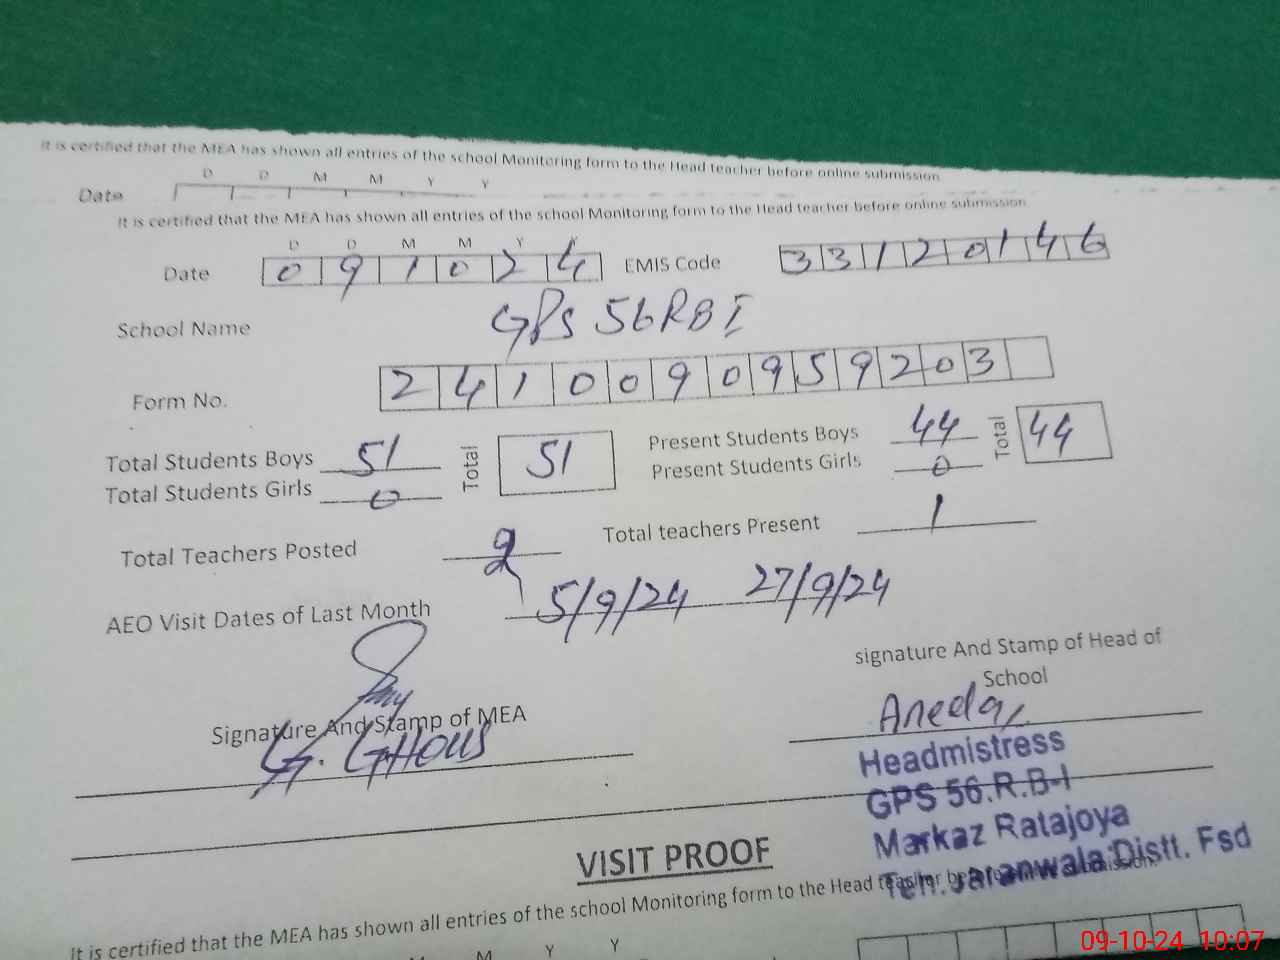 It is certified that the MEA has shown all entries of the school Monitoring form to the Head teacher before online submission
D D M M Y Y
Date
It is certified that the MEA has shown all entries of the school Monitoring form to the Head teacher before online submission
D D M M Y Y
Date 0 9 1 0 2 4 EMIS Code 3 3 1 2 0 1 4 6
School Name GPS 56RB I
Form No. 2 4 1 0 0 9 0 9 5 9 2 0 3
Total Students Boys 51 Total 51 Present Students Boys 44 Total 44
Total Students Girls 0 Present Students Girls 0
Total Teachers Posted 2 Total teachers Present 1
AEO Visit Dates of Last Month 5/9/24 27/9/24
signature And Stamp of Head of
School
Signature And Stamp of MEA
G. GHOUS
Headmistress
GPS 56.R.B-I
Markaz Ratajoya
Teh. Jaranwala Distt. Fsd
VISIT PROOF
It is certified that the MEA has shown all entries of the school Monitoring form to the Head teacher before online submission
M Y Y
09-10-24 10:07